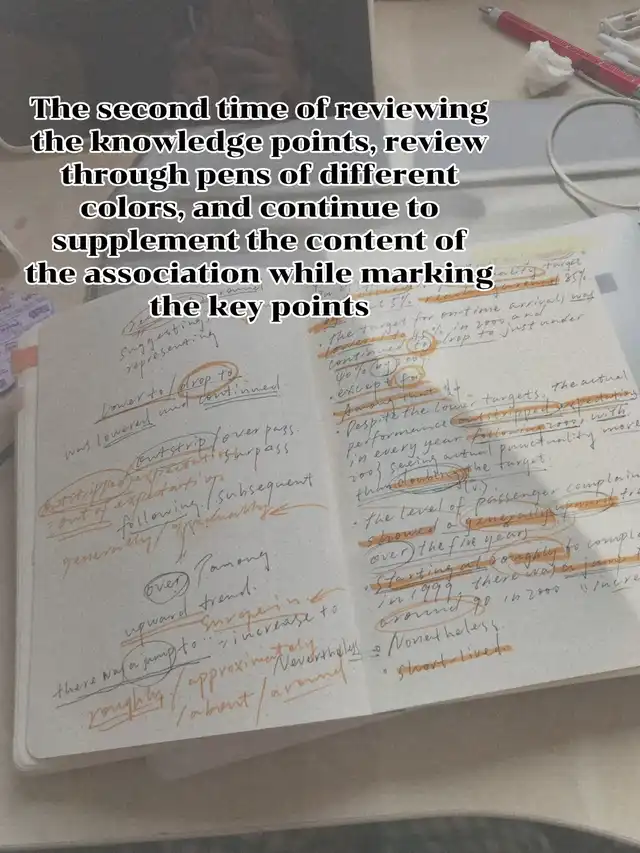 The second time of reviewing
the knowledge points, review
through pens of different
colors, and continue to
supplement the content of
the association while marking
the key points
suggesting
representing
Lower to / drop to
was lowered and continued
outstrip / over pass.
surpass
out of expectation
following / subsequent
generally /
over / among
upward trend.
surge in
there was a jump to increase to
roughly / approximately
/ about / around
Nevertheless
target
5% 35%
the target for on time arrivals was
in 2000 and
continued to drop to just under
40% by
except for
Despite the lower targets, the actual
performance
in every year with
2003 seeing actual punctuality more
than the target.
the level of passenger
showed a generally
over the five year
starting at roughly
in 1999, there was a jump
around in 2000
Nonetheless.
short-lived